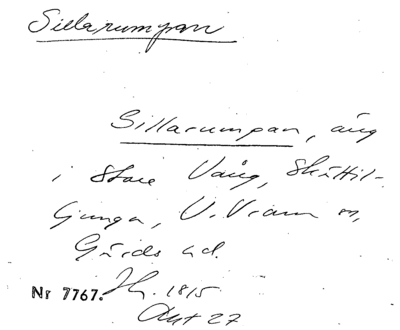 Sillarumpan
Sillarumpan, äng
i Store Vång, Skättil-
ljunga, V. Vram sn,
Gärds hd.
Nr 7767. Sk. 1815
Akt 27